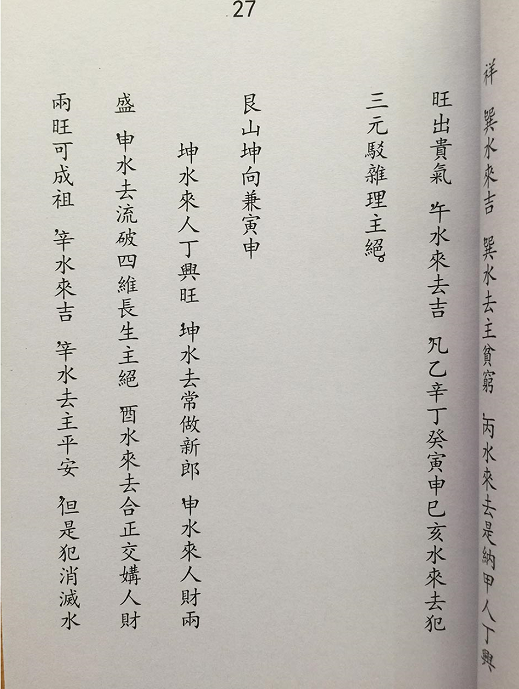 27
祥 巽水來吉 巽水去主貧窮 丙水來去是納甲人丁興
旺出貴氣 午水來去吉 凡乙辛丁癸寅申巳亥水來去犯
三元駁雜理主絕。
艮山坤向兼寅申
坤水來人丁興旺 坤水去常做新郎 申水來人財兩
盛 申水去流破四維長生主絕 酉水來去合正交媾人財
兩旺可成祖 辛水來吉 辛水去主平安 但是犯消滅水